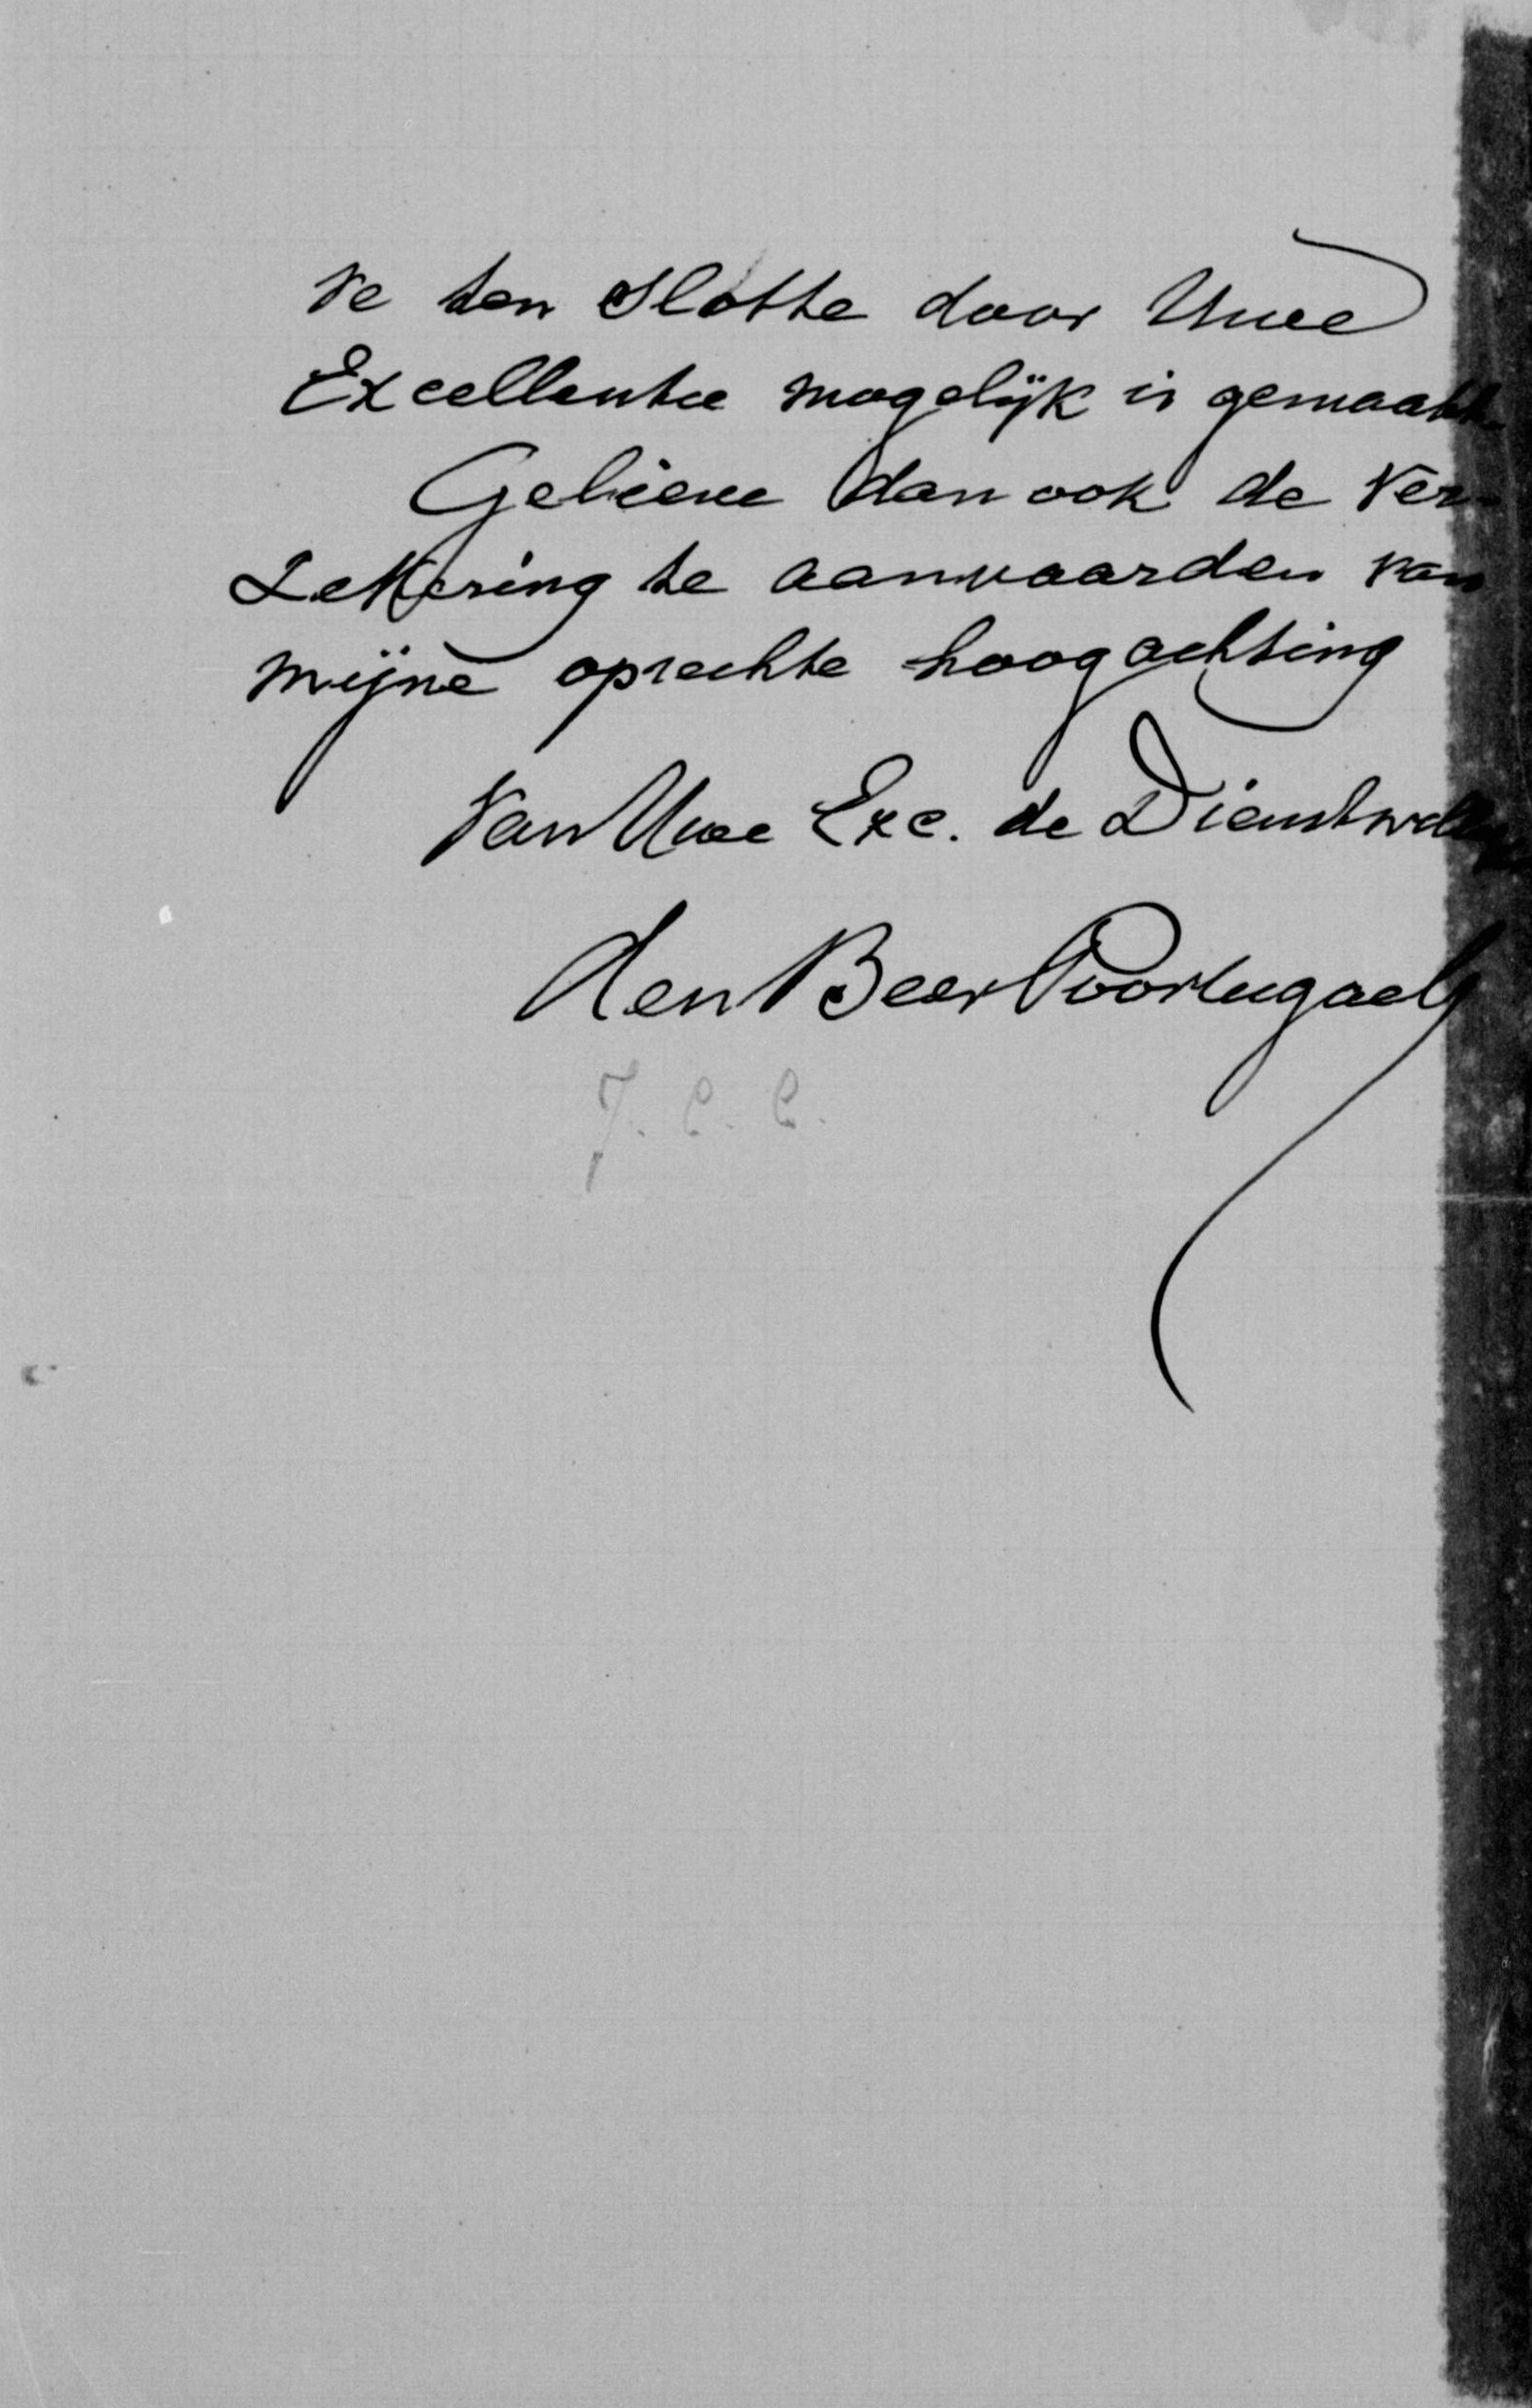 ve ten slotte door Uwe
Excellentie mogelijk is gemaakt.
Gelieve dan ook de Ver-
zekering te aanvaarden van
mijne oprechte hoogachting
Van Uwe Exc. de Dienstwillige
den Beer Poortugael
J. C. C.